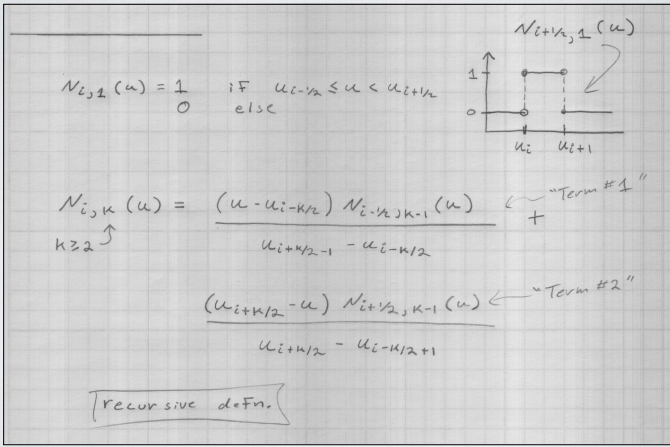 N_{i+1/2, 1}(u)
N_{i,1}(u) = 1 if u_{i-1/2} ≤ u < u_{i+1/2}
0 else
1
0
u_i u_{i+1}
N_{i,K}(u) = (u - u_{i-K/2}) N_{i-1/2,K-1}(u) ← "Term #1"
K≥2 +
u_{i+K/2-1} - u_{i-K/2}
(u_{i+K/2} - u) N_{i+1/2,K-1}(u) ← "Term #2"
u_{i+K/2} - u_{i-K/2+1}
recursive defn.